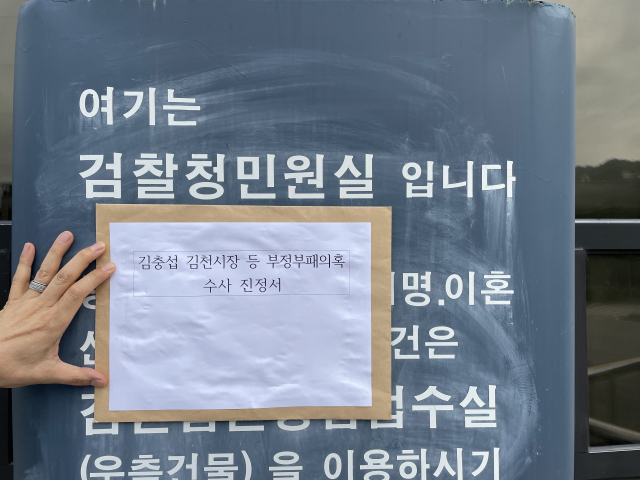 여기는
검찰청민원실 입니다
김충섭 김천시장 등 부정부패의혹
수사 진정서
명.이혼
건은
수실
(우측건물) 을 이용하시기